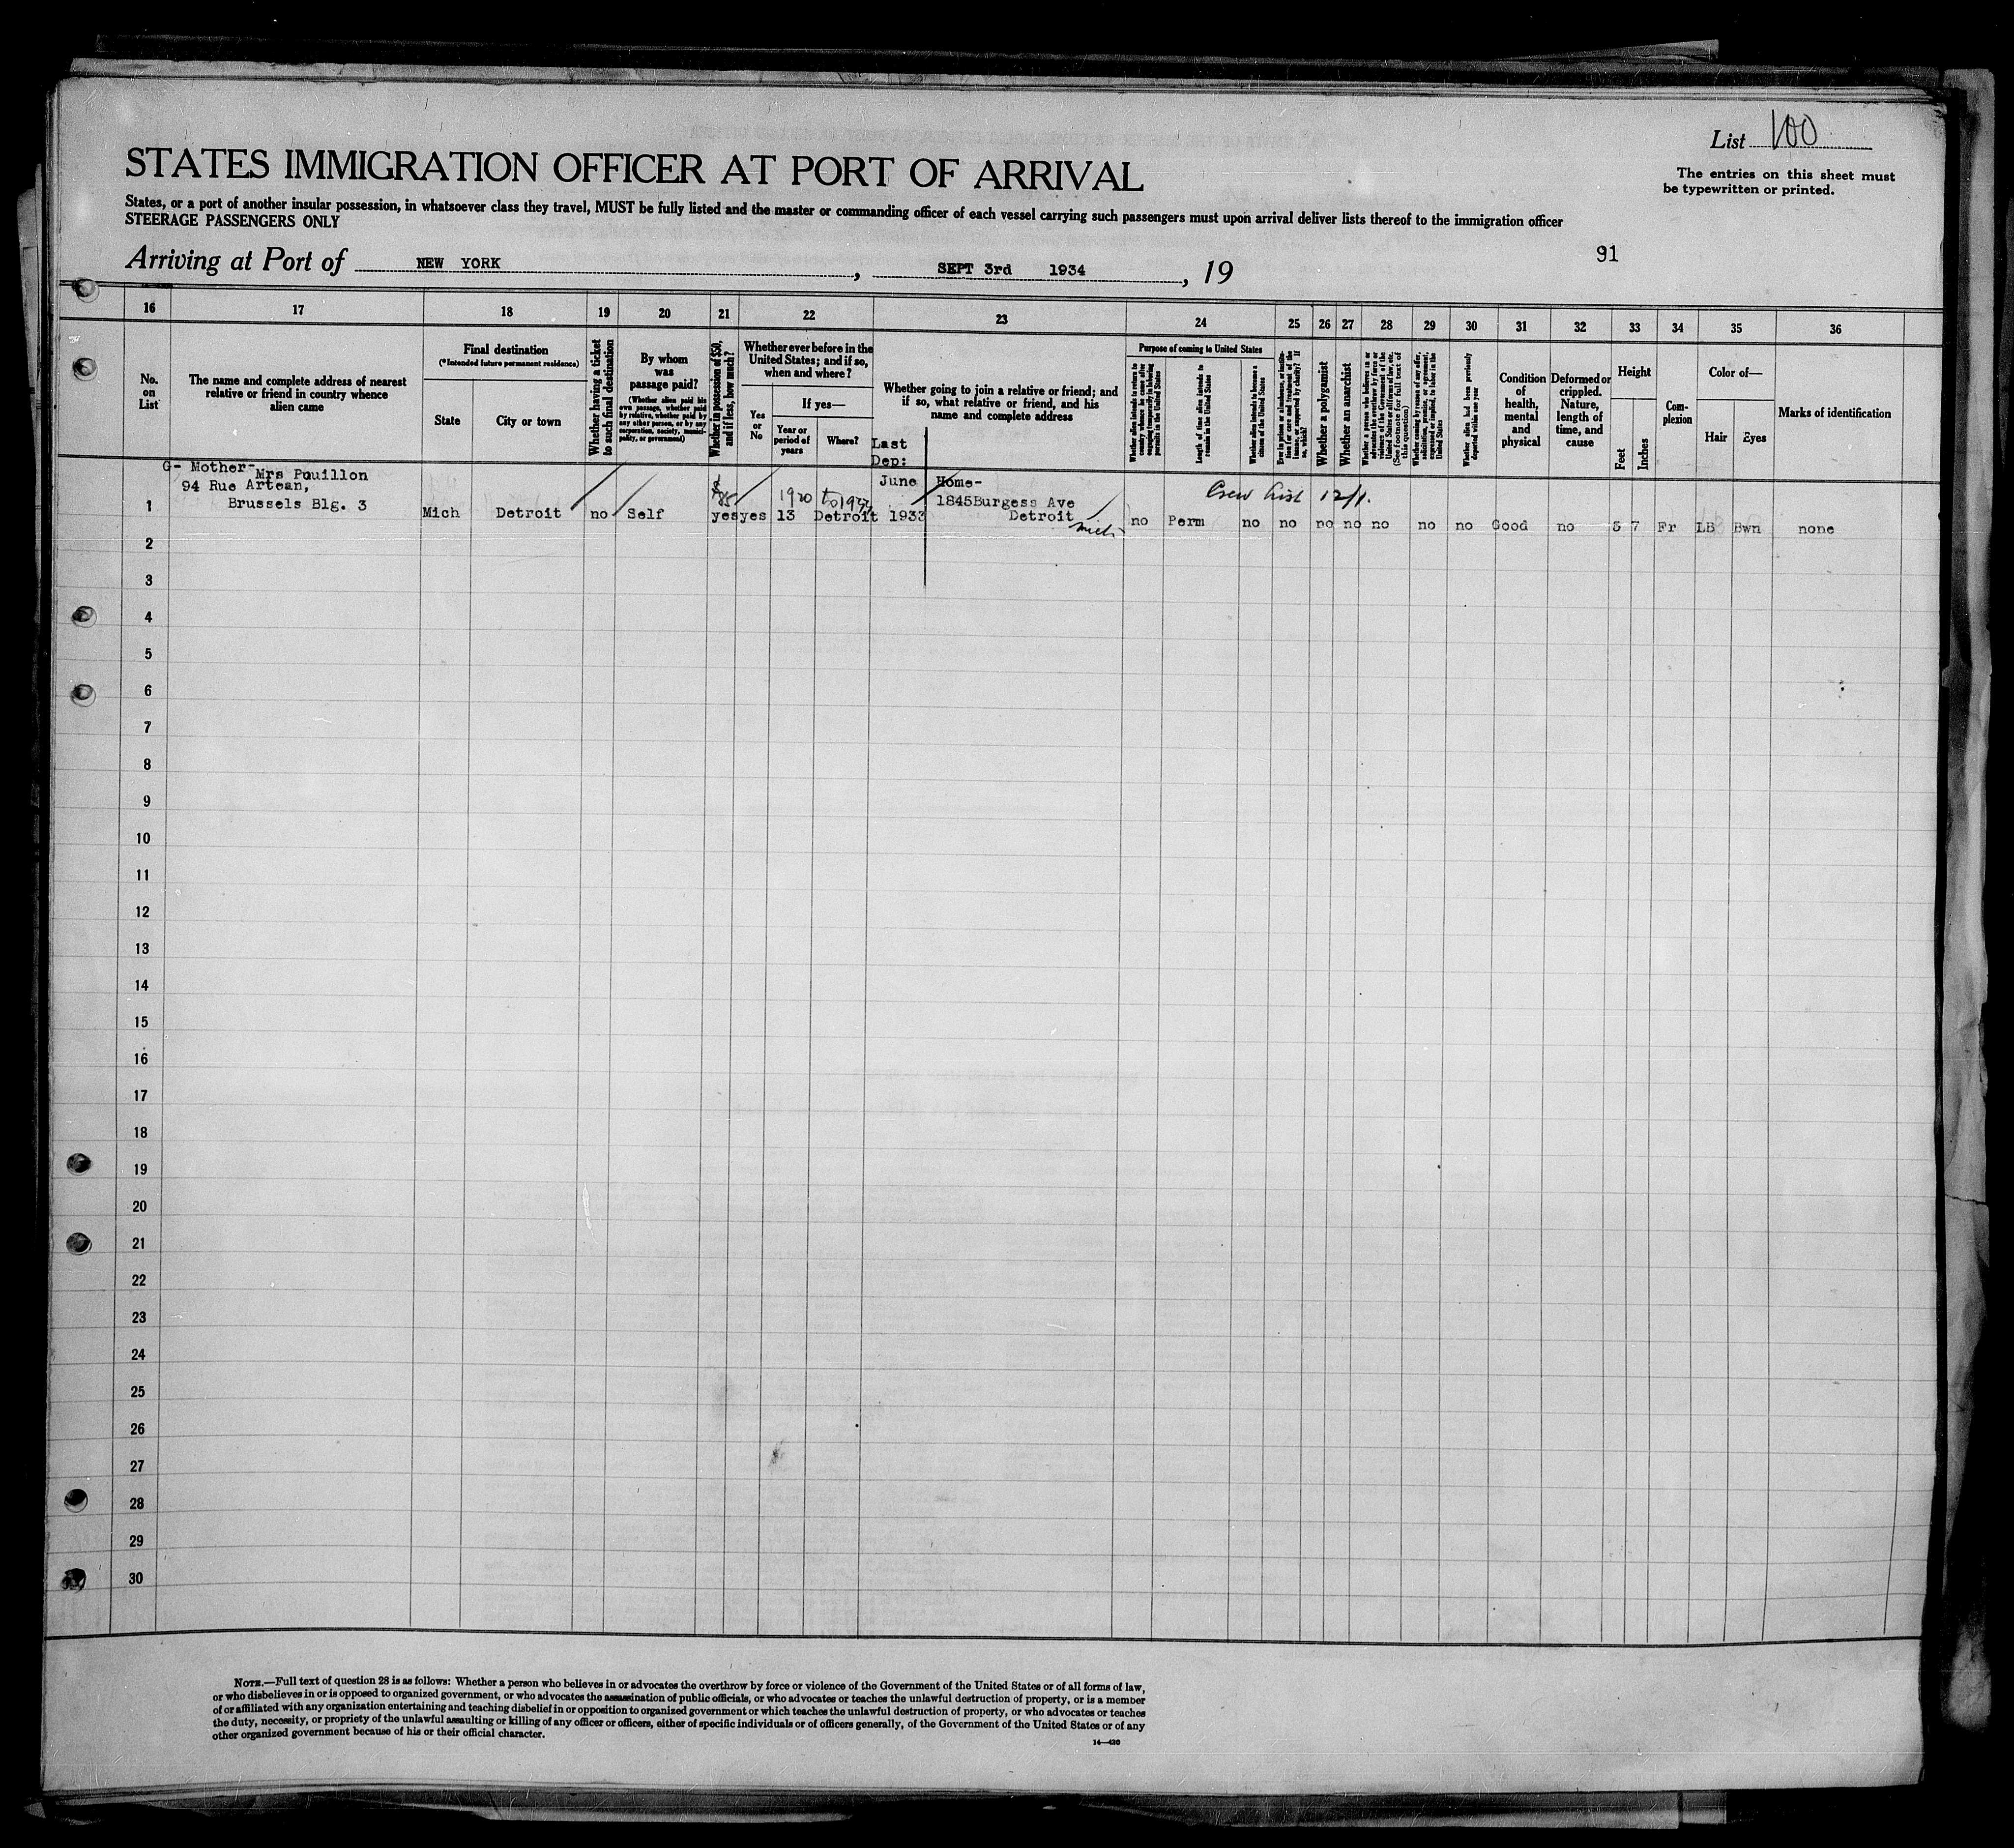 List 100
The entries on this sheet must
be typewritten or printed.
STATES IMMIGRATION OFFICER AT PORT OF ARRIVAL
States, or a port of another insular possession, in whatsoever class they travel, MUST be fully listed and the master or commanding officer of each vessel carrying such passengers must upon arrival deliver lists thereof to the immigration officer
STEERAGE PASSENGERS ONLY
91
Arriving at Port of NEW YORK, SEPT 3rd 1934, 19
16 17 18 19 20 21 22 23 24 25 26 27 28 29 30 31 32 33 34 35 36
No.
on
List
The name and complete address of nearest
relative or friend in country whence
alien came
Final destination
(*Intended future permanent residence)
State
City or town
Whether having a ticket
to such final destination
By whom
was
passage paid?
(Whether alien paid his
own passage, whether paid
by relative, whether paid by
any other person, or by any
corporation, society, munici-
pality, or government)
Whether in possession of $50,
and if less, how much?
Whether ever before in the
United States; and if so,
when and where?
Yes
or
No
If yes—
Year or
period of
years
Where?
Last
Dep:
Whether going to join a relative or friend; and
if so, what relative or friend, and his
name and complete address
Purpose of coming to United States
Whether alien intends to return to
country whence he came after
engaging temporarily in laboring
pursuits in the United States
Length of time alien intends to
remain in the United States
Whether alien intends to become a
citizen of the United States
Ever in prison or almshouse, or institu-
tion for care and treatment of the
insane, or supported by charity? If
so, which?
Whether a polygamist
Whether an anarchist
Whether a person who believes in or
advocates the overthrow by force or
violence of the Government of the
United States or all forms of law, etc.
(See footnote for full text of
this question)
Whether coming by reason of any offer,
solicitation, promise, or agreement,
expressed or implied, to labor in the
United States
Whether alien had been previously
deported within one year
Condition
of
health,
mental
and
physical
Deformed or
crippled.
Nature,
length of
time, and
cause
Height
Feet
Inches
Com-
plexion
Color of—
Hair
Eyes
Marks of identification
G- Mother-
Mrs Pouillon
94 Rue Artean,
Brussels Blg. 3
1 Mich Detroit no Self yes yes 13 Detroit 1933
$85
1920 to 1933
June
Home-
1845Burgess Ave
Detroit
Mich
Crew List 12/1.
no Perm no no no no no no no Good no 5 7 Fr LB Bwn none
2
3
4
5
6
7
8
9
10
11
12
13
14
15
16
17
18
19
20
21
22
23
24
25
26
27
28
29
30
NOTE.—Full text of question 28 is as follows: Whether a person who believes in or advocates the overthrow by force or violence of the Government of the United States or of all forms of law,
or who disbelieves in or is opposed to organized government, or who advocates the assassination of public officials, or who advocates or teaches the unlawful destruction of property, or is a member
of or affiliated with any organization entertaining and teaching disbelief in or opposition to organized government or which teaches the unlawful destruction of property, or who advocates or teaches
the duty, necessity, or propriety of the unlawful assaulting or killing of any officer or officers, either of specific individuals or of officers generally, of the Government of the United States or of any
other organized government because of his or their official character.
14—430